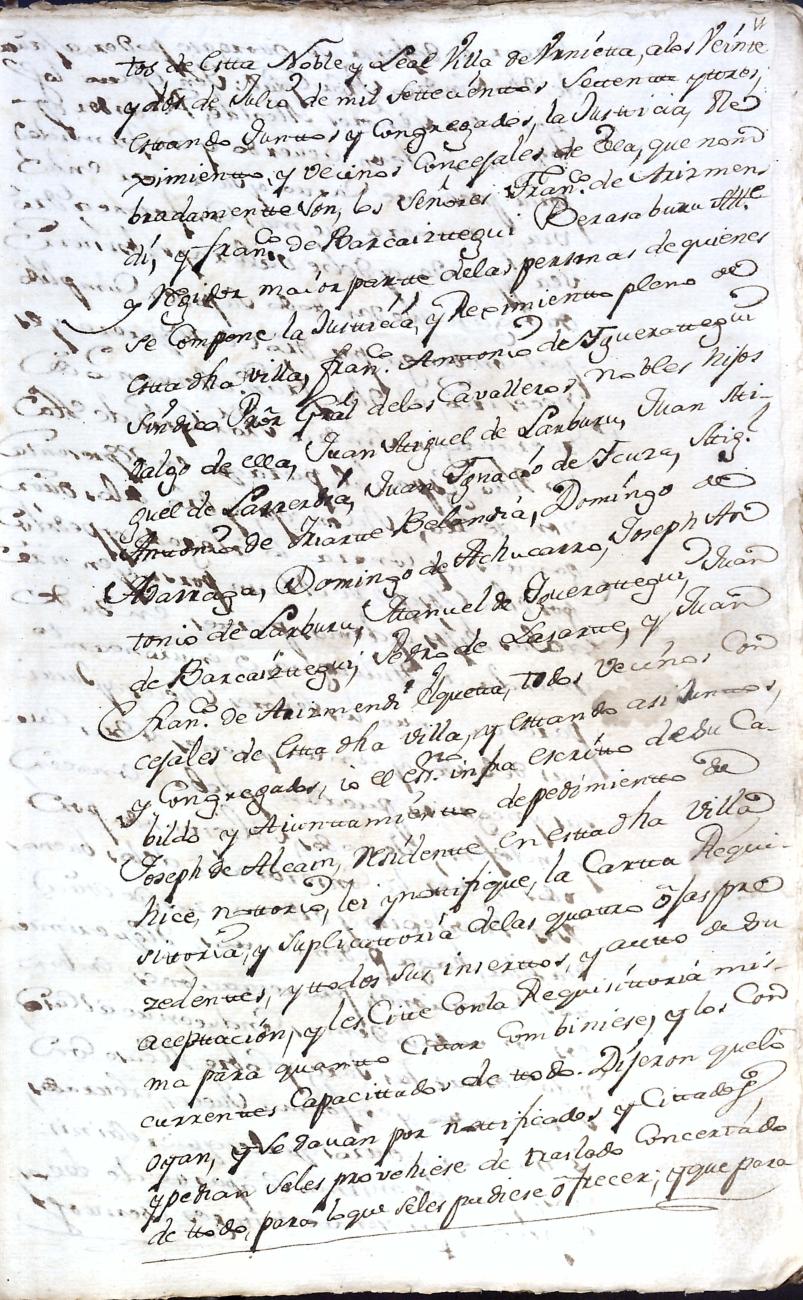 tos de Esta Noble y Leal Villa de Urnietta, a los Veinte
y dos de Julio de mil settecientos Settenta y tres,
estando Juntos y Congregados, la Justicia, Re
ximiento, y vecinos Concejales de Ella, que nom
bradamente son, los Señores Franco. de Arizmen
di, y Franco. de Barcaiztegui Berasaburu Alle.
y Regidor maior parte delas personas de quienes
se Compone la Justicia, y Reximiento pleno de
esta dha villa, Franco. Antonio de Yguerategui
Sindico Pror Gral delos Cavalleros nobles hijos
dalgo de ella, Juan Miguel de Larburu, Juan Mi-
guel de Larrendia, Juan Ygnacio de Ycuza, Migl.
Antonio de Yriarte Belandia, Domingo de
Abarraga, Domingo de Achucarro, Joseph An
tonio de Larburu, Manuel de Yguerategui, Juan
de Barcaiztegui, Pedro de Lasarte, y Juan
Franco. de Arizmendi Elquetta, todos vecinos Con
cejales de Esta dha villa, y estando asi Juntos,
y Congregados, io el essno. infra escritto de su Ca-
bildo y Aiuntamiento de pedimiento de
Joseph de Alcain, residente en esta dha villa
hice notorio, lei y notifique, la Cartta Requi-
sitoria, y suplicattoria delas quatro ojas pre
zedentes, y todos sus insertos, y autto de su
aceptacion, y les Cite Conla Requisittoria mis-
ma para quanto Citar Combiniese, y los Con
currentes Capacittados de todo. Dijeron quelo
oyan, y se davan por notificados y Cittados,
y pedian seles provehiese de traslado Concertado
de todo, para lo que seles pudiese ofrecer, y que para